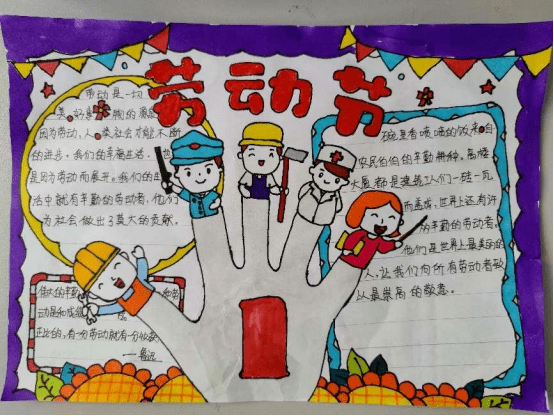 劳动节
劳动是一切
美、好
因为劳动,人类社会才能不断
的进步。我们的幸福生活,也
是因为劳动而展开。我们的生
活中就有辛勤的劳动者,他们
为社会做出了莫大的贡献。
伟大的
动是和成
正比的,有一份劳动就有一份收获
——鲁迅
碗里香喷喷的饭来自
农民伯伯的辛勤耕种。高楼
大厦都是建筑工人们一砖一瓦
而造成,世界上还有许
的辛勤的劳动者。
他们是世界上最美的
人,让我们向所有劳动者致
以最崇高的敬意。